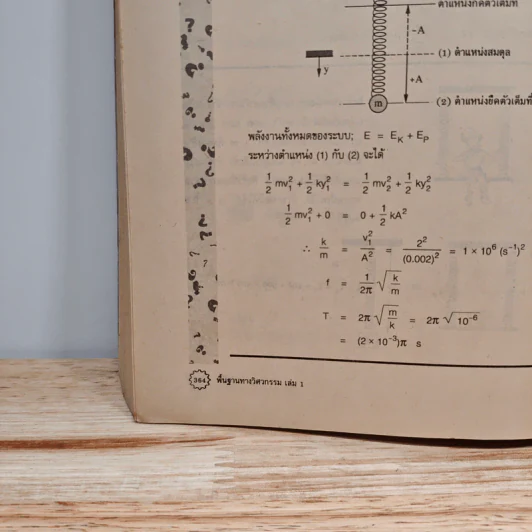 ตำแหน่งกดตัวเต็มที่
-A
(1) ตำแหน่งสมดุล
y
+A
m
(2) ตำแหน่งยืดตัวเต็มที่
พลังงานทั้งหมดของระบบ; E = E_K + E_P
ระหว่างตำแหน่ง (1) กับ (2) จะได้
1/2 mv₁² + 1/2 ky₁² = 1/2 mv₂² + 1/2 ky₂²
1/2 mv₁² + 0 = 0 + 1/2 kA²
∴ k/m = v₁²/A² = 2²/(0.002)² = 1 × 10⁶ (s⁻¹)²
f = 1/2π √(k/m)
T = 2π √(m/k) = 2π √10⁻⁶
= (2 × 10⁻³)π s
364 พื้นฐานทางวิศวกรรม เล่ม 1